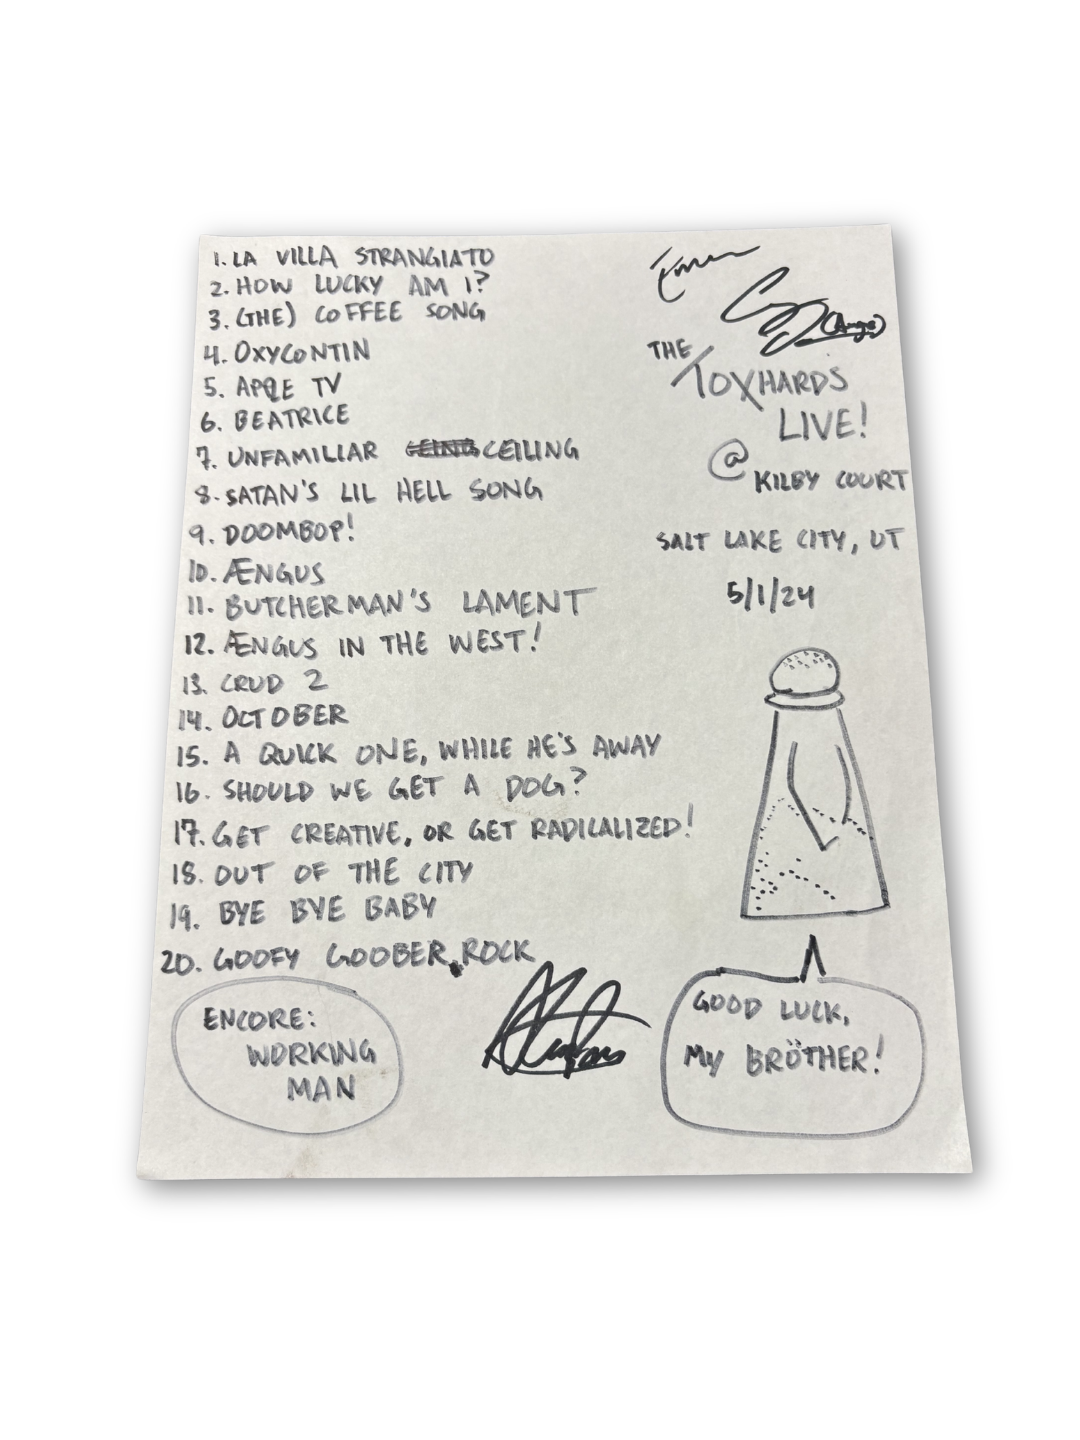 1. LA VILLA STRANGIATO
2. HOW LUCKY AM I?
3. (THE) COFFEE SONG
4. OXYCONTIN
5. APPLE TV
6. BEATRICE
7. UNFAMILLAR CEILING
8. SATAN'S LIL HELL SONG
9. DOOMBOP!
10. ÆNGUS
11. BUTCHERMAN'S LAMENT
12. ÆNGUS IN THE WEST!
13. CRUD 2
14. OCTOBER
15. A QUICK ONE, WHILE HE'S AWAY
16. SHOULD WE GET A DOG?
17. GET CREATIVE, OR GET RADICALIZED!
18. OUT OF THE CITY
19. BYE BYE BABY
20. GOOFY GOOBER ROCK
ENCORE:
WORKING
MAN
THE
TOXHARDS
LIVE!
@ KILBY COURT
SALT LAKE CITY, UT
5/1/24
GOOD LUCK,
MY BRÖTHER!